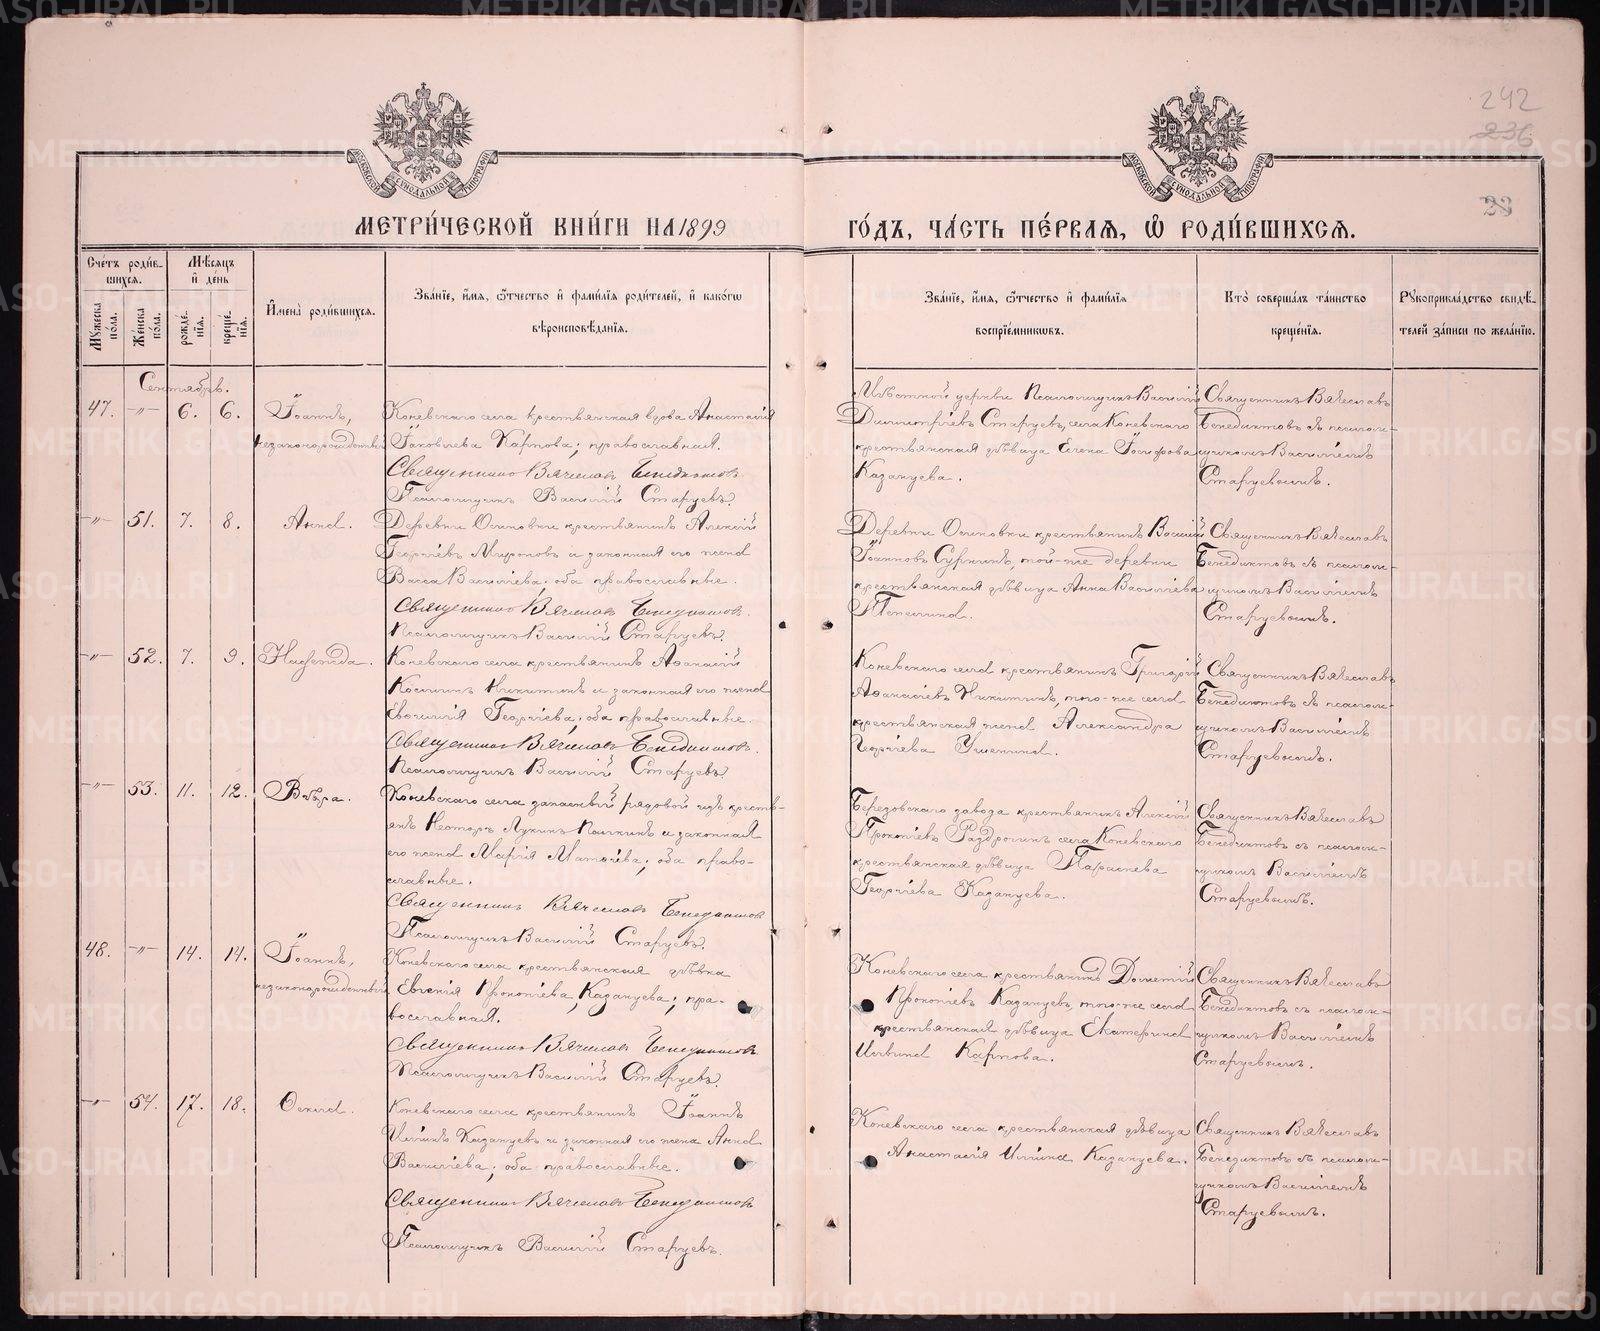 242
236
23
МЕТРИ́ЧЕСКОЙ КНИ́ГИ НА 1899
ГО́ДЪ, ЧА́СТЬ ПЕ́РВАѦ, Ѽ РОДИ́ВШИХСѦ.
Сче́тъ роди́в-
шихся.
Мѣ́сяцъ
и҆ де́нь
Мꙋ́жеска по́ла.
Же́нска по́ла.
рожде́нїѧ.
креще́нїѧ.
И҆мена̀ роди́вшихсѧ.
Зва́нїе, и҆́мѧ, ѻ҆́тчество и҆ фами́лїѧ роди́телей, и҆ како́гѡ
вѣроисповѣ́данїѧ.
Зва́нїе, и҆́мѧ, ѻ҆́тчество и҆ фами́лїѧ
воспрїе́мникѡвъ.
Кто̀ соверша́лъ та́инство
креще́нїѧ.
Рꙋкоприкла́дство свидѣ́-
телей за́писи по жела́нїю.
Сентябрь.
47. -"- 6. 6. Іоаннъ,
незаконорожденный
Коневскаго села крестьянская вдова Анастасія
Іаковлева Карпова; православная.
Священникъ Вячеславъ Бенедиктовъ.
Псаломщикъ Василій Старцевъ.
Мѣстной церкви Псаломщикъ Василій
Димитріевъ Старцевъ, села Коневскаго
крестьянская дѣвица Елена Іосифова
Казанцева.
Священникъ Вячеславъ
Бенедиктовъ съ псалом-
щикомъ Василіемъ
Старцевымъ.
-"- 51. 7. 8. Анна.
Деревни Осиновки крестьянинъ Алексій
Георгіевъ Миронов и законная его жена
Васса Василіева, оба православные.
Священникъ Вячеславъ Бенедиктовъ.
Псаломщикъ Василій Старцевъ.
Деревни Осиновки крестьянинъ Василій
Іоанновъ Суркинъ, той-же деревни
крестьянская дѣвица Анна Василіева
Священникъ Вячеславъ
Бенедиктовъ съ псалом-
щикомъ Василіемъ
Старцевымъ.
-"- 52. 7. 9. Надежда.
Коневскаго села крестьянинъ Аѳанасій
Космин Никитинъ и законная его жена
Евѳимія Георгіева, оба православные.
Священникъ Вячеславъ Бенедиктовъ.
Псаломщикъ Василій Старцевъ.
Коневскаго села крестьянинъ Григорій
Аѳанасіевъ Никитинъ, того-же села
крестьянская жена Александра
Георгіева
Священникъ Вячеславъ
Бенедиктовъ съ псалом-
щикомъ Василіемъ
Старцевымъ.
-"- 53. 11. 12. Вѣра.
Коневскаго села запасный рядовой изъ кресть-
янъ Несторъ Лукинъ и законная
его жена Марія Матѳіева; оба право-
славные.
Священникъ Вячеславъ Бенедиктовъ
Псаломщикъ Василій Старцевъ.
Березовскаго завода крестьянинъ Алексій
Прокопіевъ села Коневскаго
крестьянская дѣвица Параскева
Георгіева Казанцева.
Священникъ Вячеславъ
Бенедиктовъ съ псалом-
щикомъ Василіемъ
Старцевымъ.
48. -"- 14. 14. Іоаннъ,
незаконорожденный
Коневскаго села крестьянская дѣвка
Евгенія Прокопіева Казанцева; пра-
вославная.
Священникъ Вячеславъ Бенедиктовъ
Псаломщикъ Василій Старцевъ.
Коневскаго села крестьянинъ Дометій
Прокопіевъ Казанцевъ, того-же села
крестьянская дѣвица Екатерина
Ильина Карпова.
Священникъ Вячеславъ
Бенедиктовъ съ псалом-
щикомъ Василіемъ
Старцевымъ.
-"- 54. 17. 18. Ѳекла.
Коневскаго села крестьянинъ Іоаннъ
Ильинъ Казанцевъ и законная его жена Анна
Василіева; оба православные.
Священникъ Вячеславъ Бенедиктовъ
Псаломщикъ Василій Старцевъ.
Коневскаго села крестьянская дѣвица
Анастасія Ильина Казанцева.
Священникъ Вячеславъ
Бенедиктовъ съ псалом-
щикомъ Василіемъ
Старцевымъ.
METRIKI.GASO-URAL.RU